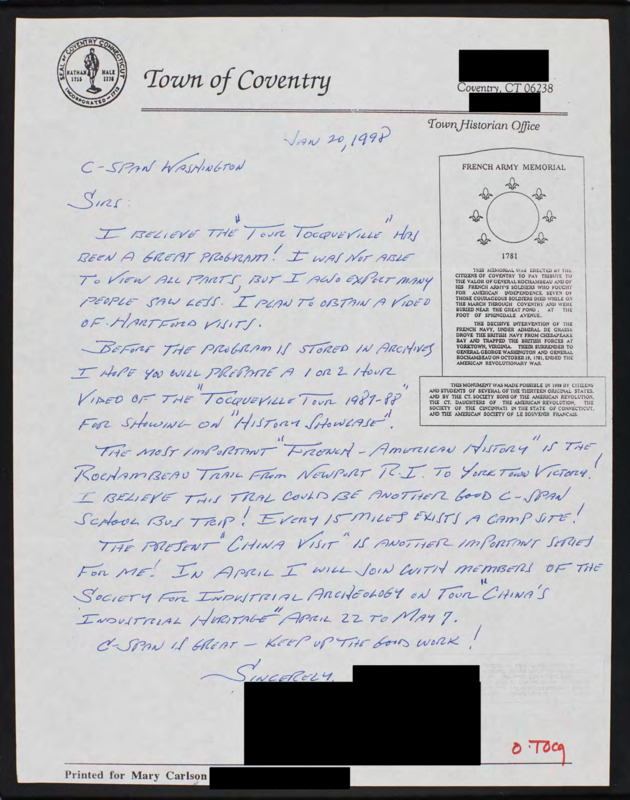 SEAL OF COVENTRY CONNECTICUT
NATHAN HALE
1755 1776
INCORPORATED 1712
Town of Coventry
Coventry, CT 06238
Town Historian Office
JAN 20, 1998
C-SPAN WASHINGTON
SIRS:
I BELIEVE THE "TOUR TOCQUEVILLE" HAS
BEEN A GREAT PROGRAM! I WAS NOT ABLE
TO VIEW ALL PARTS, BUT I ALSO EXPECT MANY
PEOPLE SAW LESS. I PLAN TO OBTAIN A VIDEO
OF HARTFORD VISITS.
BEFORE THE PROGRAM IS STORED IN ARCHIVES
I HOPE YOU WILL PREPARE A 1 OR 2 HOUR
VIDEO OF THE "TOCQUEVILLE TOUR 1987-88"
FOR SHOWING ON "HISTORY SHOWCASE".
THE MOST IMPORTANT "FRENCH-AMERICAN HISTORY" IS THE
ROCHAMBEAU TRAIL FROM NEWPORT R.I. TO YORKTOWN VICTORY!
I BELIEVE THIS TRAL COULD BE ANOTHER GOOD C-SPAN
SCHOOL BUS TRIP! EVERY 15 MILES EXISTS A CAMP SITE!
THE PRESENT "CHINA VISIT" IS ANOTHER IMPORTANT SERIES
FOR ME! IN APRIL I WILL JOIN WITH MEMBERS OF THE
SOCIETY FOR INDUSTRIAL ARCHEOLOGY ON TOUR "CHINA'S
INDUSTRIAL HERITAGE" APRIL 22 TO MAY 7.
C-SPAN IS GREAT - KEEP UP THE GOOD WORK!
SINCERELY,
FRENCH ARMY MEMORIAL
1781
THIS MEMORIAL WAS ERECTED BY THE
CITIZENS OF COVENTRY TO PAY TRIBUTE TO
THE VALOR OF GENERAL ROCHAMBEAU AND OF
HIS FRENCH ARMY'S SOLDIERS WHO FOUGHT
FOR AMERICAN INDEPENDENCE. SEVEN OF
THOSE COURAGEOUS SOLDIERS DIED WHILE ON
THE MARCH THROUGH COVENTRY AND WERE
BURIED NEAR THE GREAT POND, AT THE
FOOT OF SPRINGDALE AVENUE.
THE DECISIVE INTERVENTION OF THE
FRENCH NAVY, UNDER ADMIRAL DE GRASSE
DROVE THE BRITISH NAVY FROM CHESAPEAKE
BAY AND TRAPPED THE BRITISH FORCES AT
YORKTOWN, VIRGINIA. THEIR SURRENDER TO
GENERAL GEORGE WASHINGTON AND GENERAL
ROCHAMBEAU ON OCTOBER 19, 1781, ENDED THE
AMERICAN REVOLUTIONARY WAR.
THIS MONUMENT WAS MADE POSSIBLE IN 1998 BY CITIZENS
AND STUDENTS OF SEVERAL OF THE THIRTEEN ORIGINAL STATES,
AND BY THE CT. SOCIETY SONS OF THE AMERICAN REVOLUTION,
THE CT. DAUGHTERS OF THE AMERICAN REVOLUTION, THE
SOCIETY OF THE CINCINNATI IN THE STATE OF CONNECTICUT,
AND THE AMERICAN SOCIETY OF LE SOUVENIR FRANCAIS.
O.TOCQ
Printed for Mary Carlson